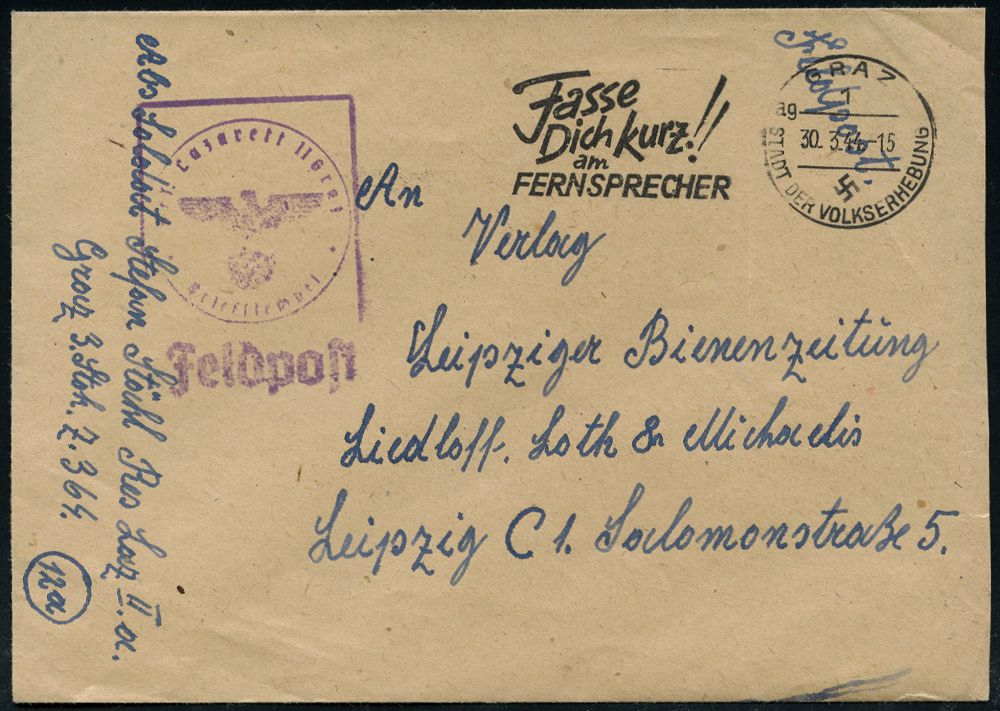 Feldpost.
Fasse
Dich kurz!!
am
FERNSPRECHER
GRAZ
1
ag
30. 3.44.-15
STADT DER VOLKSERHEBUNG
Lazarett II Graz
Briefstempel
Feldpost
An
Verlag
Leipziger Bienenzeitung
Liedloff. Loth & Michaelis
Leipzig C 1. Salomonstraße 5.
Abs Soldat Stefan Stöckl Res Laz II. a.
Graz 3. Stck. Z. 364
12a